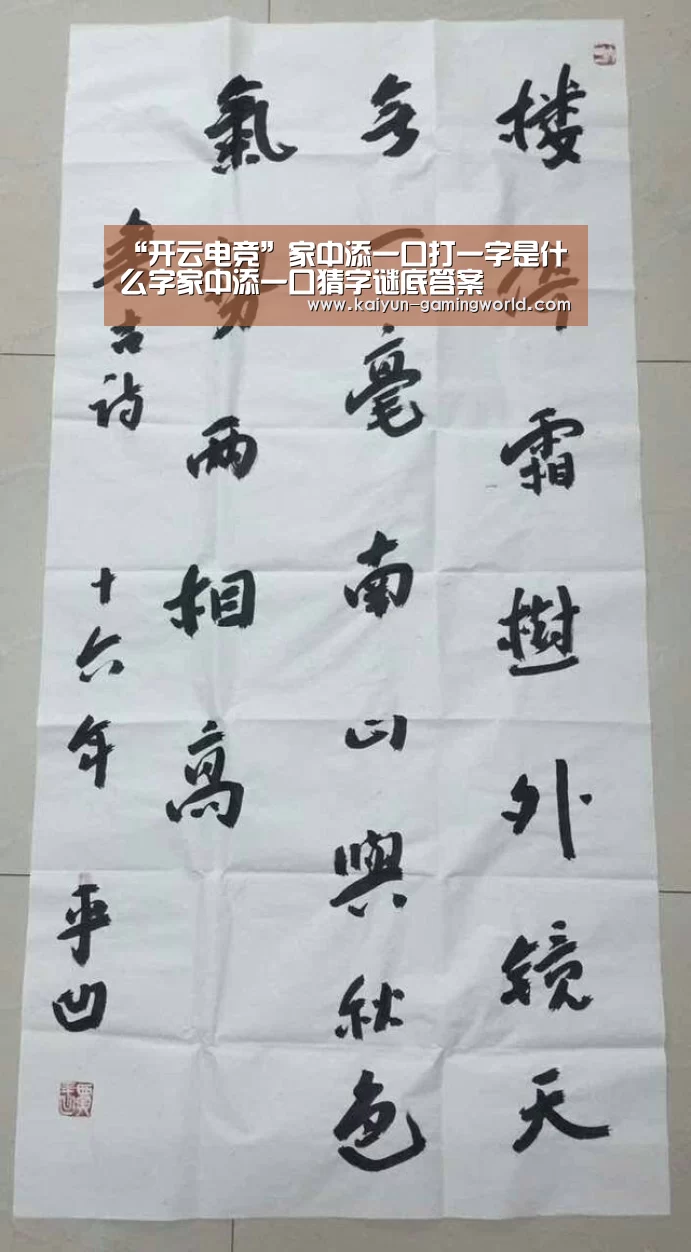 “开云电竞”家中添一口打一字是什
么字家中添一口猜字谜底答案
www.kaiyun-gamingworld.com
楼倚霜樹外镜天
無一毫南山與秋色
氣势两相高
書古诗 十六年 平凹